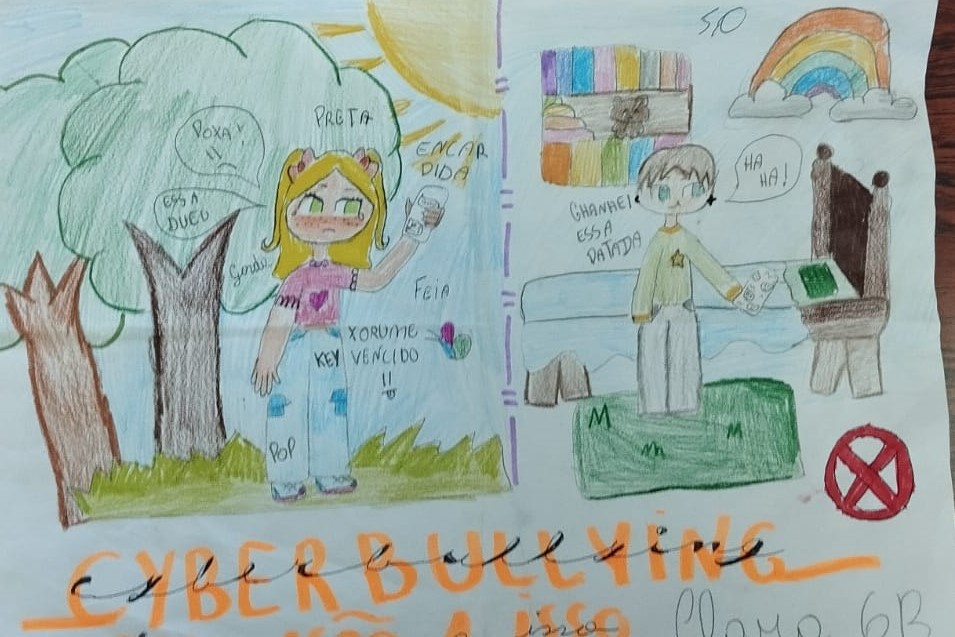 5,0
POXA!
ESSA
DUEU
PRETA
ENCAR
DIDA
Gorda
FEIA
XORUME
VENCIDO
!!
m
KEY
POP
HA
HA!
GHANHEI
ESSA
BATADA
M
m
M
CYBERBULLYING
cyberbullying
NÃO A isso
isso
6B